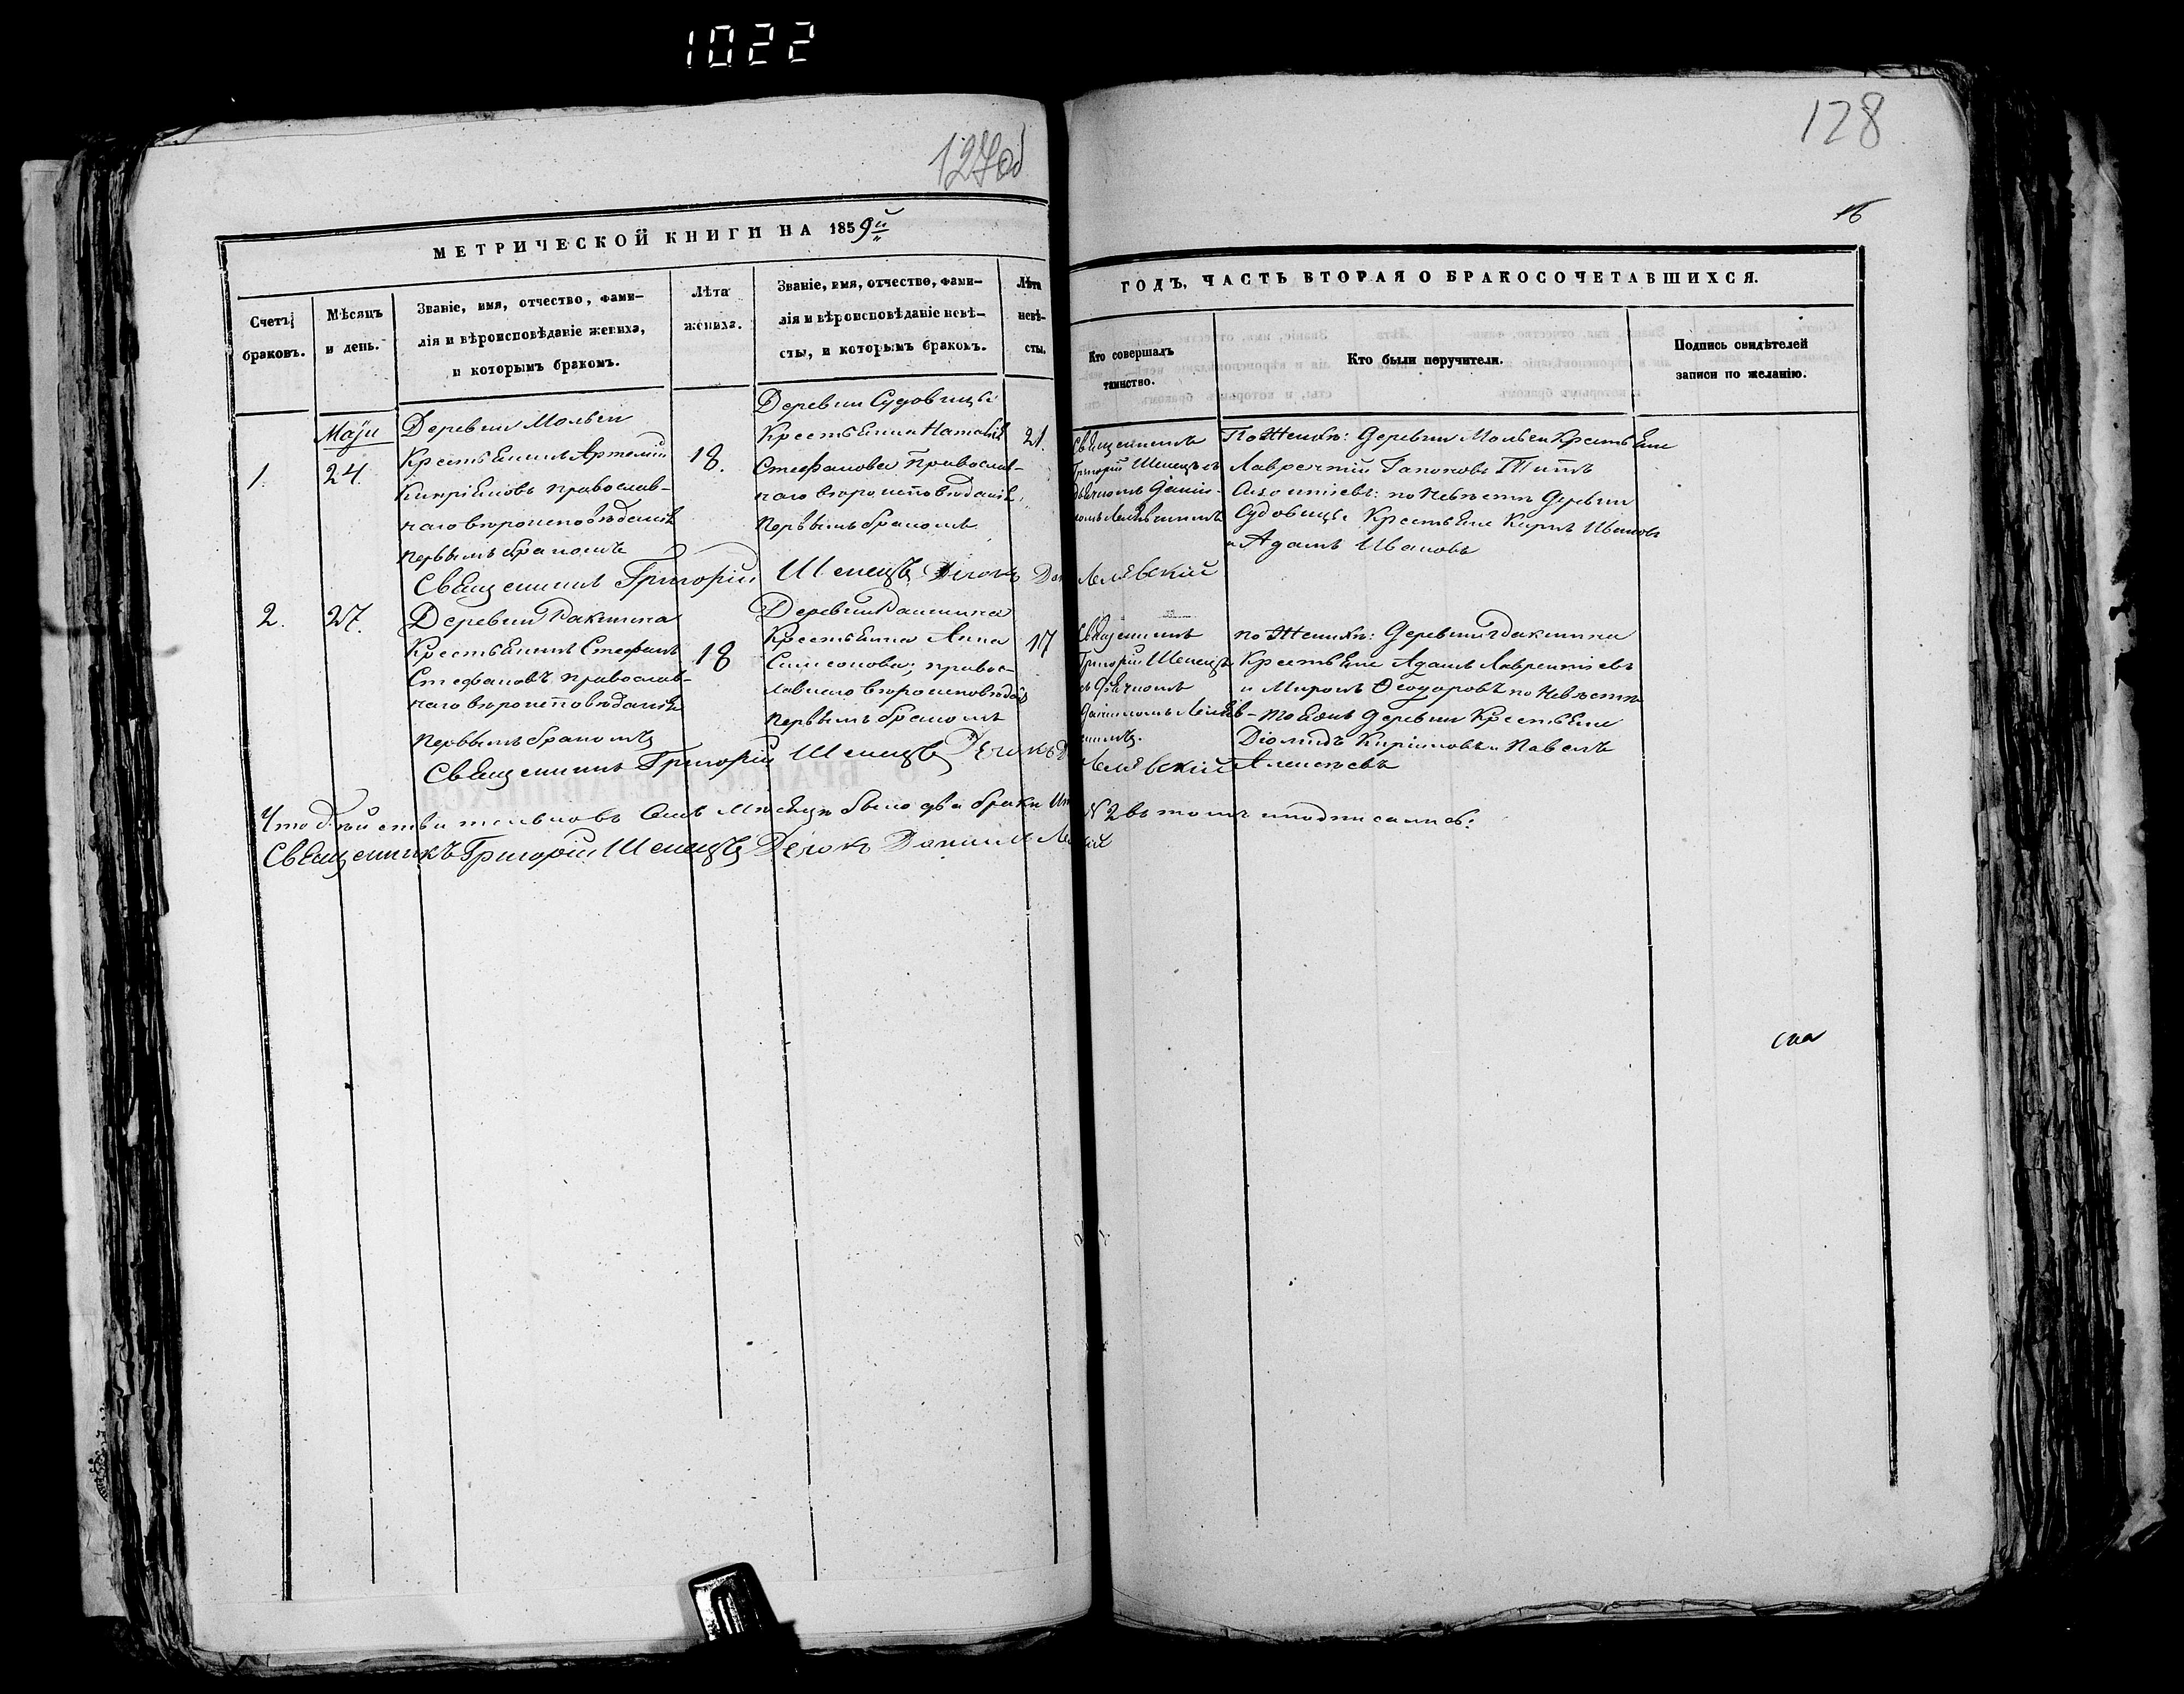 1022
127об
128
16
МЕТРИЧЕСКОЙ КНИГИ НА 1859й
ГОДЪ, ЧАСТЬ ВТОРАЯ О БРАКОСОЧЕТАВШИХСЯ.
Счетъ
браковъ.
Мѣсяцъ
и день.
Званіе, имя, отчество, фами-
лія и вѣроисповѣданіе жениха,
и которымъ бракомъ.
Лѣта
жениха.
Званіе, имя, отчество, фами-
лія и вѣроисповѣданіе невѣ-
сты, и которымъ бракомъ.
Лѣта
невѣ-
сты.
Кто совершалъ
таинство.
Кто были поручители.
Подпись свидѣтелей
записи по желанію.
1.
Маія
24.
Деревни Мольчи
Крестьянинъ Артемій
Кипріановъ православ-
наго вѣроисповѣданія
первымъ бракомъ
18.
Деревни Судовицы
Крестьянка Наталія
Стефанова православ-
наго вѣроисповѣданія
первымъ бракомъ
21.
Священникъ
Григорій Шенецъ съ
дьячкомъ Дани-
По Женихѣ: Деревни Мольчи Крестьяне
Лаврентій Титъ
по Невѣстѣ Деревни
Судовицы Крестьяне Карпъ Ивановъ
и Адамъ Ивановъ
Священникъ Григорій Шенецъ Дячокъ
2.
27.
Деревни Ракшина
Крестьянинъ Стефанъ
Стефановъ православ-
наго вѣроисповѣданія
первымъ бракомъ
18
Деревни Ракшина
Крестьянка Анна
Самсонова; правос-
лавнаго вѣроисповѣда
первымъ бракомъ
17
Священникъ
Григорій Шенецъ
съ дьячкомъ
по Женихѣ: Деревни Ракшина
Крестьяне Адамъ Лаврентіевъ
и Миронъ Ѳеодоровъ по Невѣстѣ
тоя же Деревни Крестьяне
Діомидъ Кирилловъ и Павелъ
Алексѣевъ
Священникъ Григорій Шенецъ Дячокъ
Что дѣйствительно въ семъ мѣсяцѣ было два брака
№ 2 въ томъ и подписались:
Священникъ Григорій Шенецъ Дячокъ Даніилъ